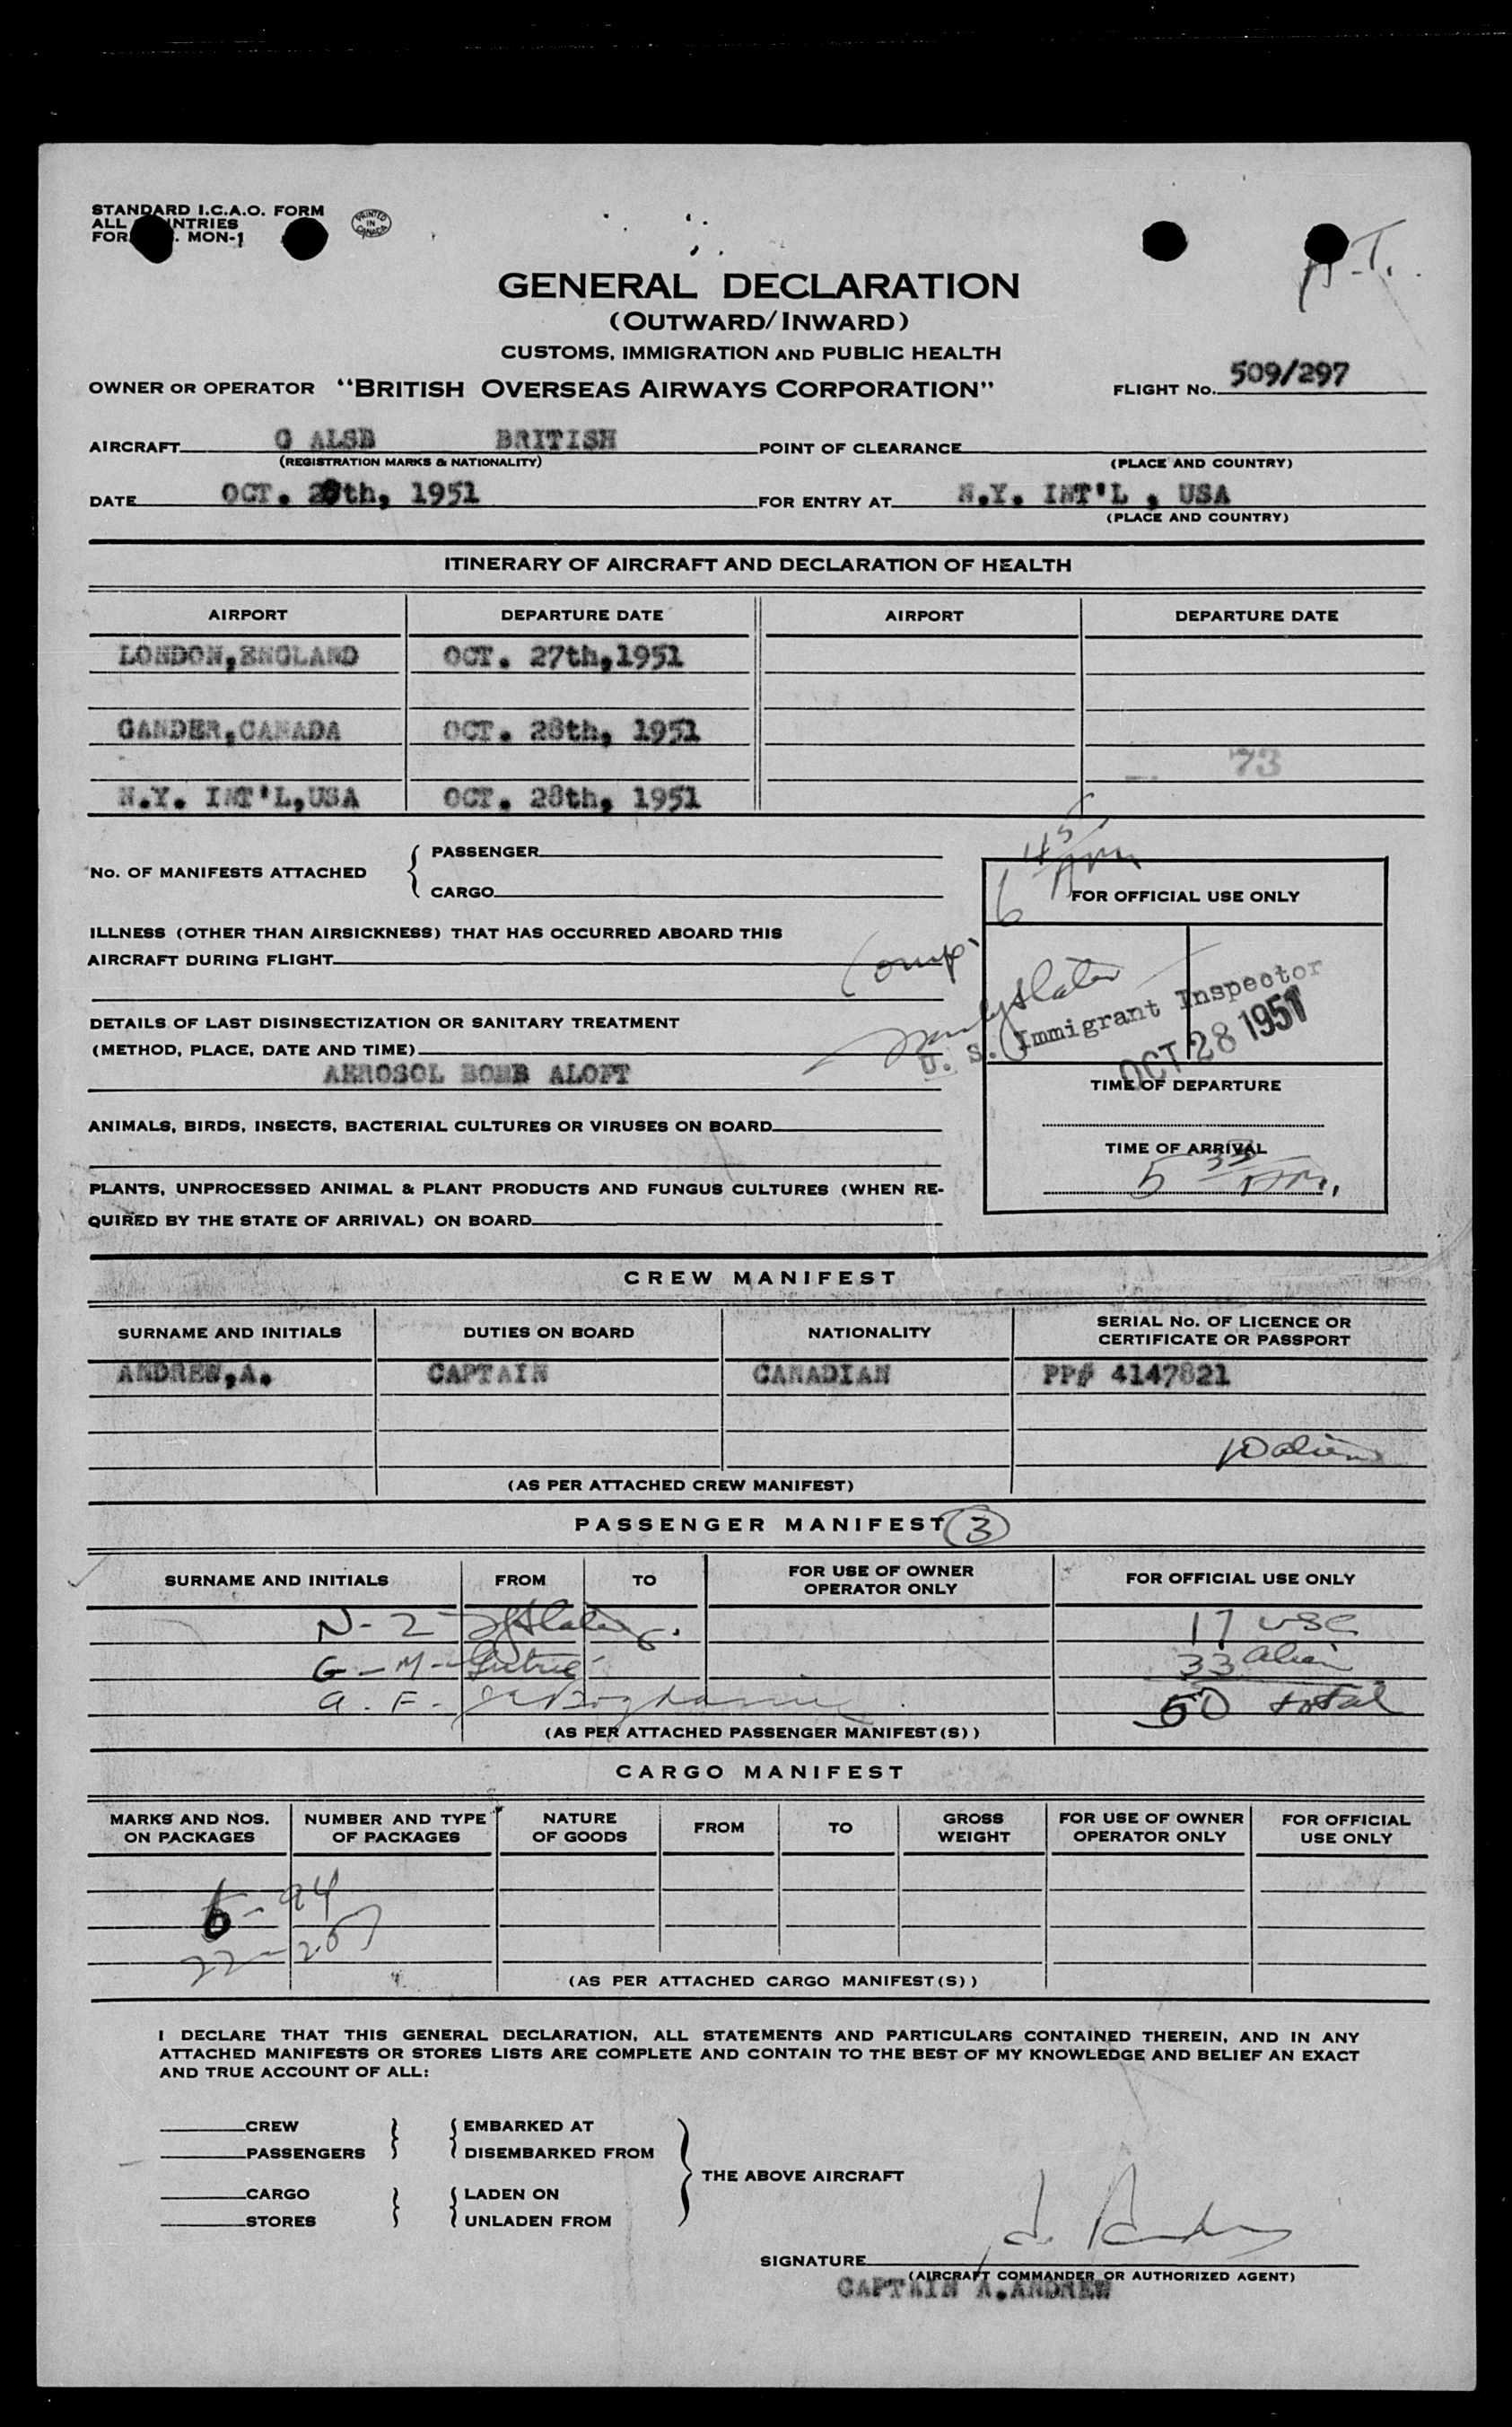 STANDARD I.C.A.O. FORM
ALL NTRIES
FOR . MON-1
PRINTED IN CANADA
A-T.
GENERAL DECLARATION
(OUTWARD/INWARD)
CUSTOMS, IMMIGRATION AND PUBLIC HEALTH
OWNER OR OPERATOR "BRITISH OVERSEAS AIRWAYS CORPORATION" FLIGHT No. 509/297
AIRCRAFT G ALSB BRITISH POINT OF CLEARANCE
(REGISTRATION MARKS & NATIONALITY) (PLACE AND COUNTRY)
DATE OCT. 28th, 1951 FOR ENTRY AT N.Y. INT'L , USA
(PLACE AND COUNTRY)
ITINERARY OF AIRCRAFT AND DECLARATION OF HEALTH
AIRPORT DEPARTURE DATE AIRPORT DEPARTURE DATE
LONDON,ENGLAND OCT. 27th,1951
GANDER,CANADA OCT. 28th, 1951
73
N.Y. INT'L,USA OCT. 28th, 1951
No. OF MANIFESTS ATTACHED
PASSENGER
CARGO
6 45 AM
FOR OFFICIAL USE ONLY
ILLNESS (OTHER THAN AIRSICKNESS) THAT HAS OCCURRED ABOARD THIS
AIRCRAFT DURING FLIGHT
Comp.
DETAILS OF LAST DISINSECTIZATION OR SANITARY TREATMENT
(METHOD, PLACE, DATE AND TIME)
AEROSOL BOMB ALOFT
U. S. Immigrant Inspector
OCT 28 1951
TIME OF DEPARTURE
ANIMALS, BIRDS, INSECTS, BACTERIAL CULTURES OR VIRUSES ON BOARD
TIME OF ARRIVAL
5 33 AM.
PLANTS, UNPROCESSED ANIMAL & PLANT PRODUCTS AND FUNGUS CULTURES (WHEN RE-
QUIRED BY THE STATE OF ARRIVAL) ON BOARD
CREW MANIFEST
SURNAME AND INITIALS DUTIES ON BOARD NATIONALITY SERIAL No. OF LICENCE OR
CERTIFICATE OR PASSPORT
ANDREW,A. CAPTAIN CANADIAN PP# 4147821
10 alien
(AS PER ATTACHED CREW MANIFEST)
PASSENGER MANIFEST 3
SURNAME AND INITIALS FROM TO FOR USE OF OWNER
OPERATOR ONLY FOR OFFICIAL USE ONLY
N-2 17 USC
G-M- 33 alien
a. F. 50 total
(AS PER ATTACHED PASSENGER MANIFEST(S))
CARGO MANIFEST
MARKS AND NOS.
ON PACKAGES
NUMBER AND TYPE
OF PACKAGES
NATURE
OF GOODS
FROM
TO
GROSS
WEIGHT
FOR USE OF OWNER
OPERATOR ONLY
FOR OFFICIAL
USE ONLY
6-94
22-257
(AS PER ATTACHED CARGO MANIFEST(S))
I DECLARE THAT THIS GENERAL DECLARATION, ALL STATEMENTS AND PARTICULARS CONTAINED THEREIN, AND IN ANY
ATTACHED MANIFESTS OR STORES LISTS ARE COMPLETE AND CONTAIN TO THE BEST OF MY KNOWLEDGE AND BELIEF AN EXACT
AND TRUE ACCOUNT OF ALL:
CREW EMBARKED AT
PASSENGERS DISEMBARKED FROM
THE ABOVE AIRCRAFT
CARGO LADEN ON
STORES UNLADEN FROM
SIGNATURE
(AIRCRAFT COMMANDER OR AUTHORIZED AGENT)
CAPTAIN A.ANDREW